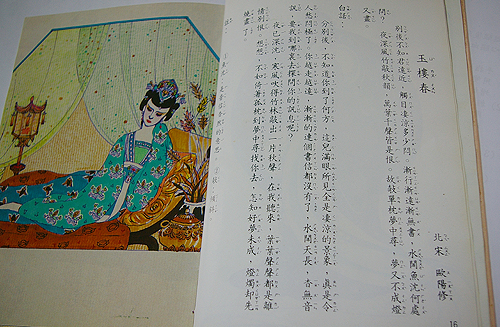 玉樓春
北宋 歐陽修
別後不知君遠近，觸目淒涼多少悶。漸行漸遠漸無書，水闊魚沈何處
問？
夜深風竹敲秋韻，萬葉千聲皆是恨。故敧單枕夢中尋，夢又不成燈
又燼。
白話：
分別後，不知道你到了何方，這兒滿眼所見全是淒涼的景象，真是令
人愁悶極了。你越走越遠，漸漸的連個書信都沒有了，水闊天長，杳無音
訊，要我到哪裏去探問你的訊息呢？
夜已深沈，寒風吹得竹林敲出一片秋聲，在我聽來，葉葉聲聲都是離
情別恨，想想，不如倚著孤枕到夢中尋找你去，怎知好夢未成，燈燭卻先
燒盡了。
16